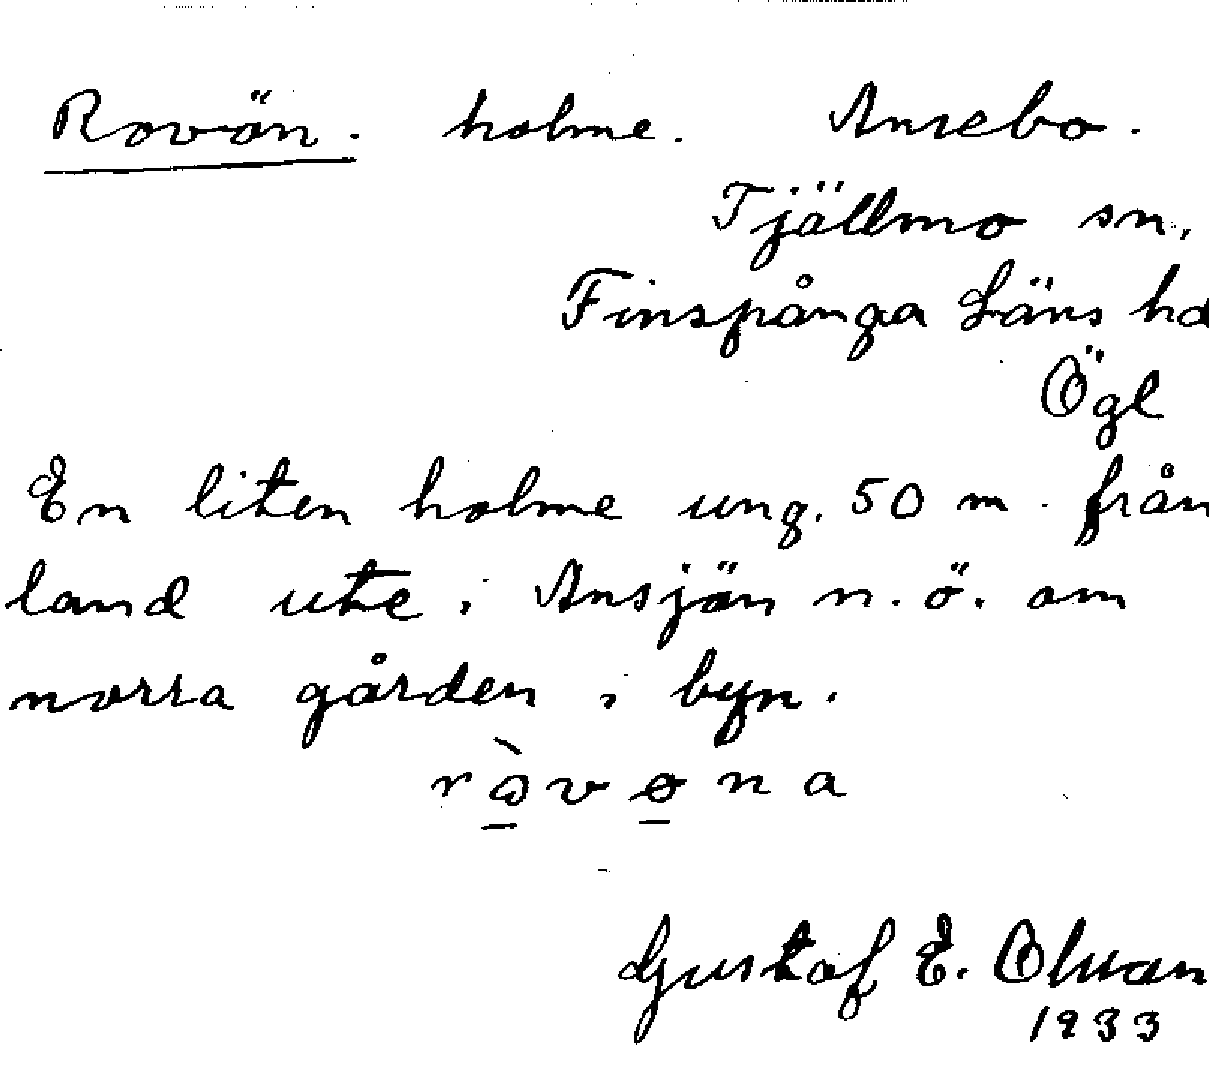 Rovön. holme. Ansebo.
Tjällmo sn,
Finspånga Läns hd
Ögl
En liten holme ung. 50 m. från
land ute i Ansjön n. ö. om
norra gården i byn.
Gustaf E. Olsson
1933